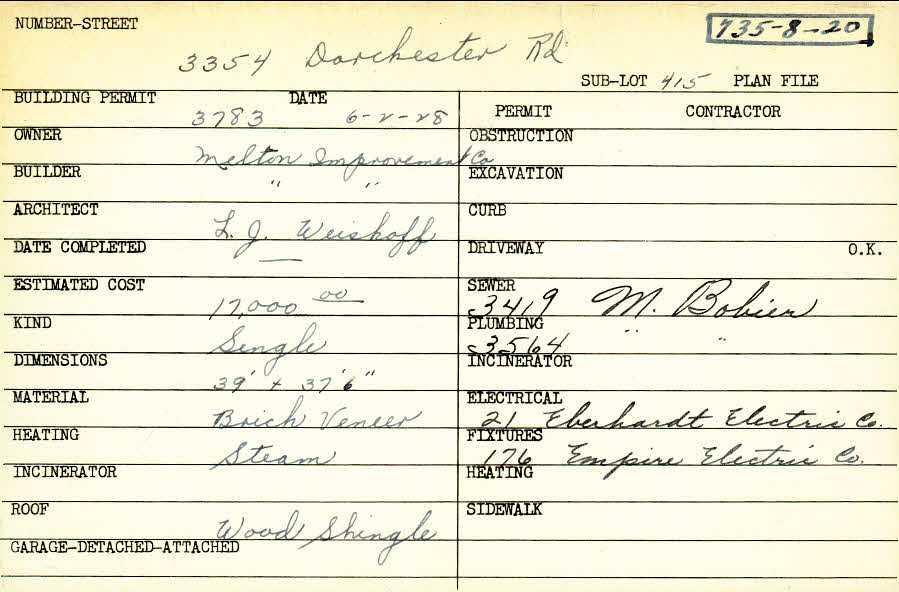 NUMBER-STREET
735-8-20
3354 Dorchester Rd.
SUB-LOT 415 PLAN FILE
BUILDING PERMIT DATE
3783 6-2-28
PERMIT CONTRACTOR
OWNER
Melton Improvement Co
BUILDER
" "
ARCHITECT
L. J. Weishoff
DATE COMPLETED
—
ESTIMATED COST
17,000 00
KIND
Single
DIMENSIONS
39' + 37'6"
MATERIAL
Brick Veneer
HEATING
Steam
INCINERATOR
ROOF
Wood Shingle
GARAGE-DETACHED-ATTACHED
OBSTRUCTION
EXCAVATION
CURB
DRIVEWAY O.K.
SEWER
3419 M. Bobier
PLUMBING
3564 " "
INCINERATOR
ELECTRICAL
21 Eberhardt Electric Co.
FIXTURES
176 Empire Electric Co.
HEATING
SIDEWALK